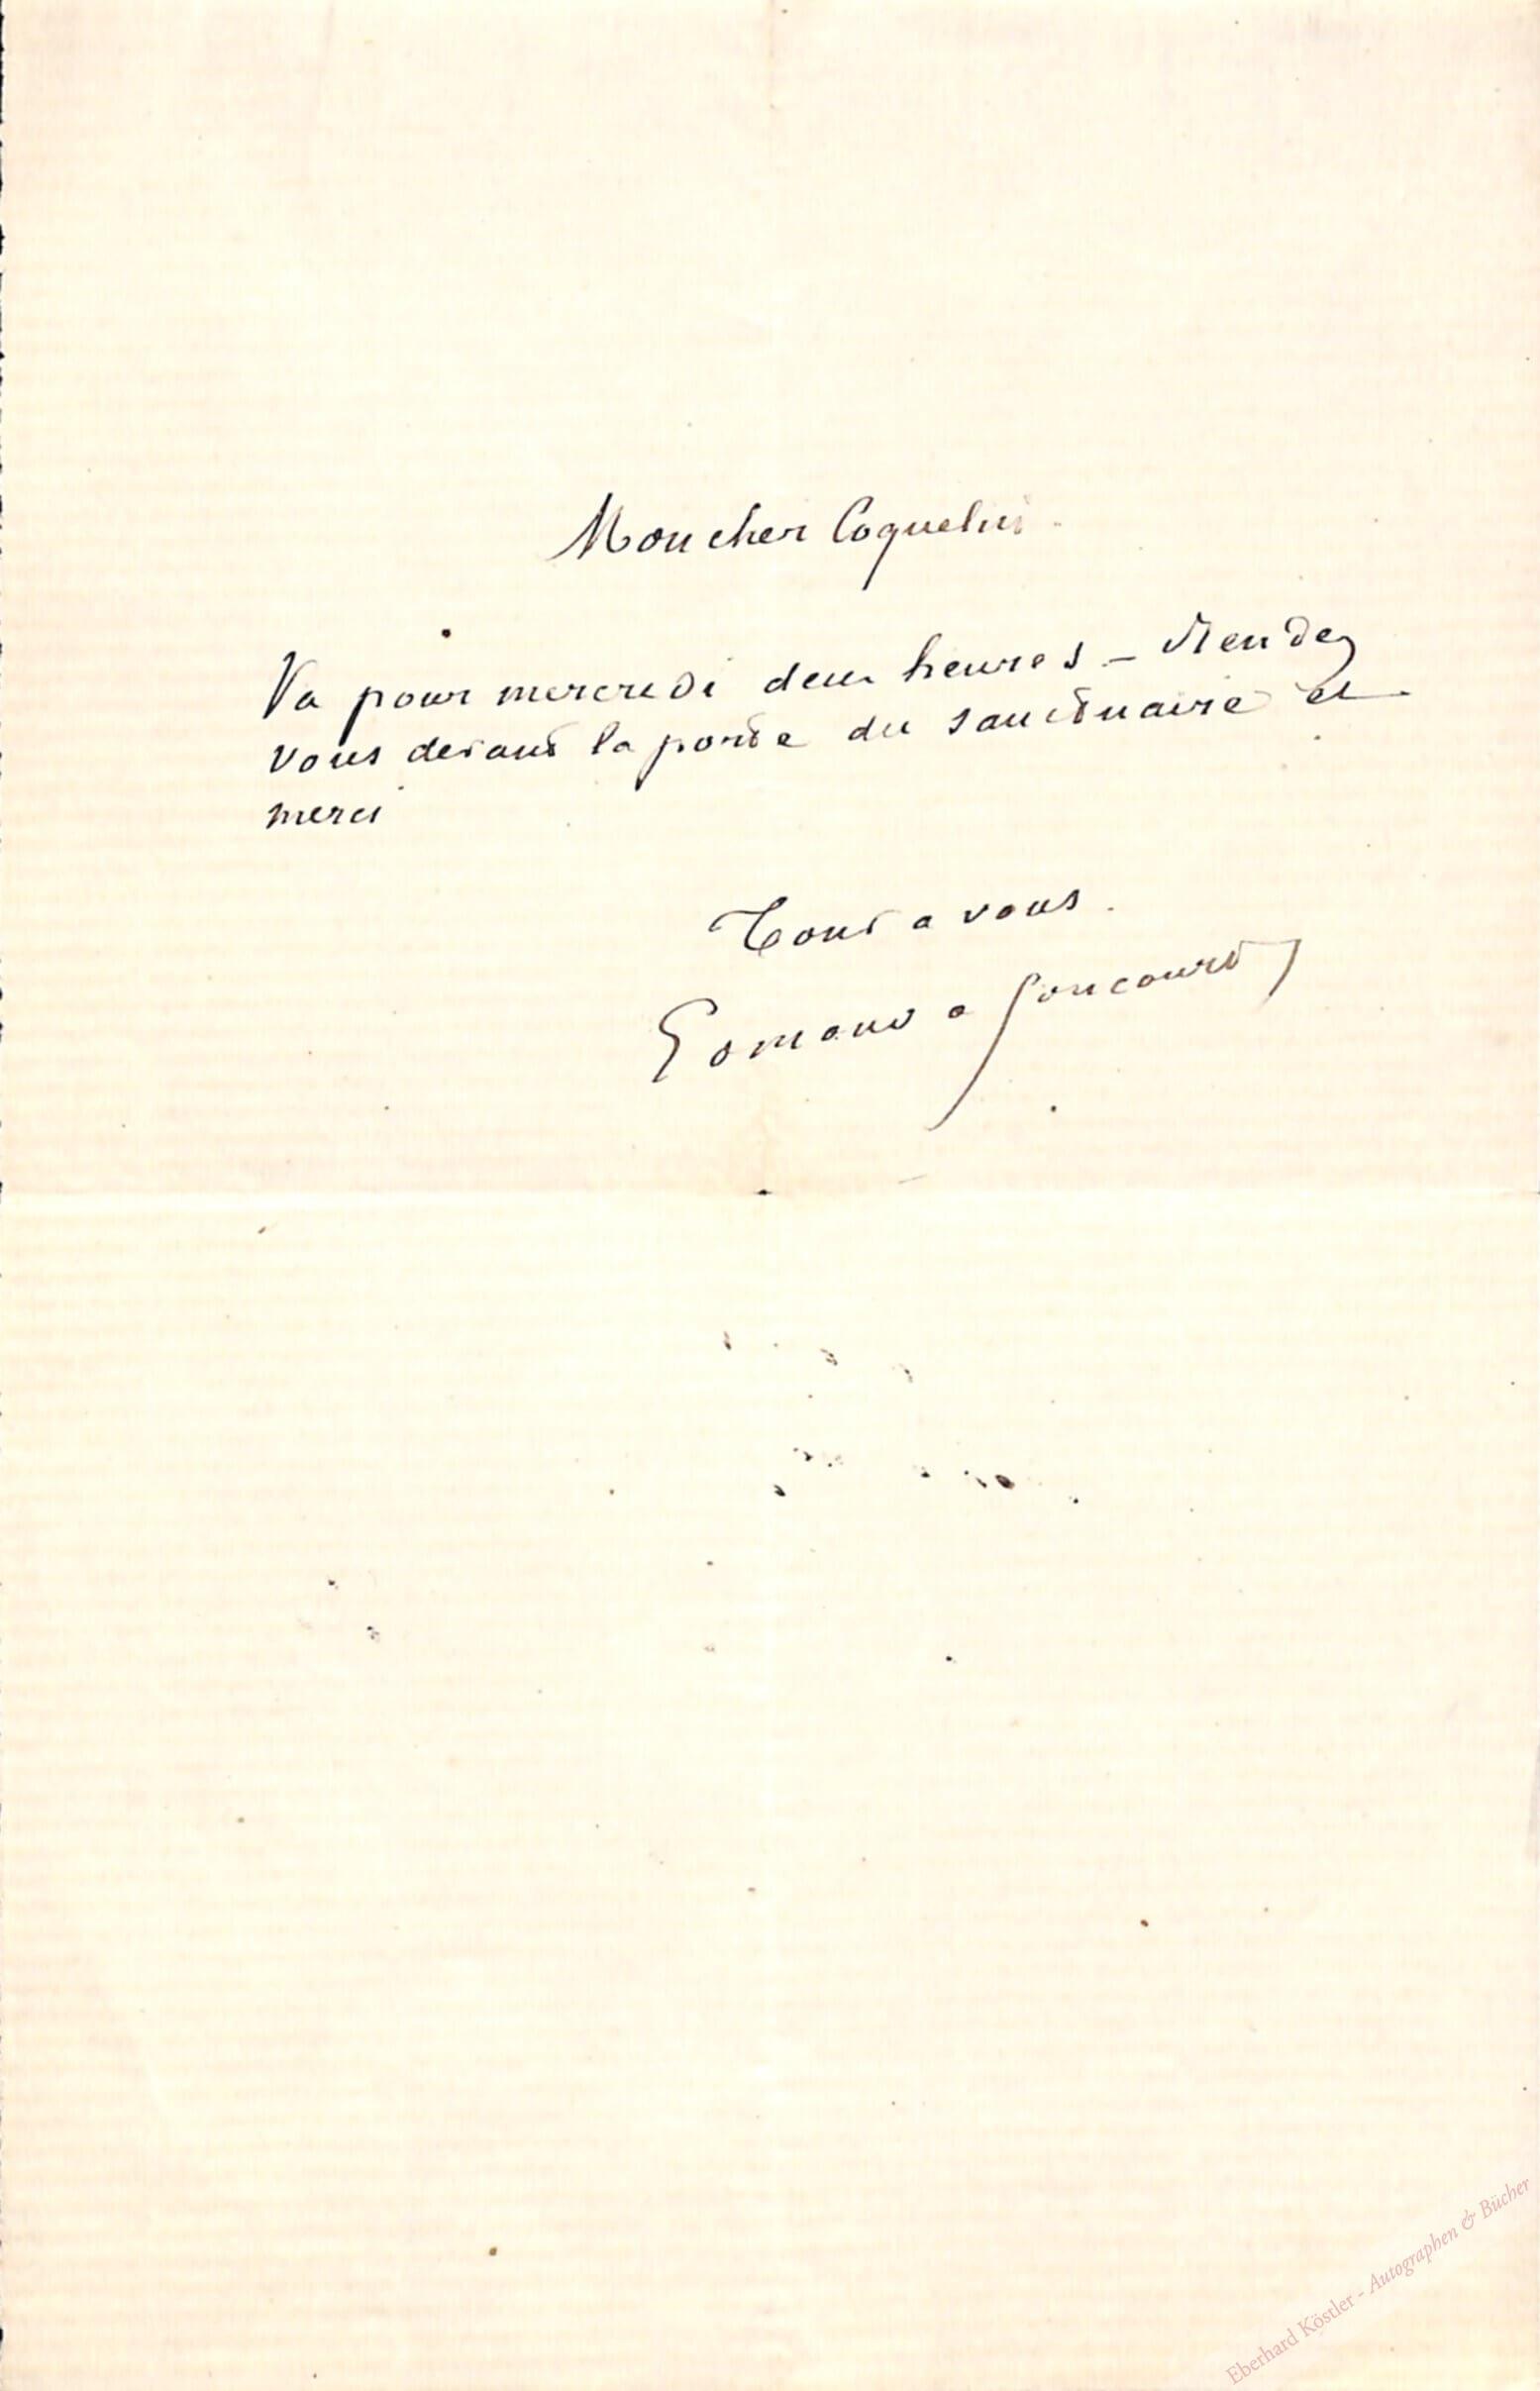 Mon cher Coquelin
Va pour mercredi deux heures – Rendez
vous devant la porte du sanctuaire et
merci
Tout a vous.
Edmond de Goncourt
Eberhard Köstler - Autographen & Bücher